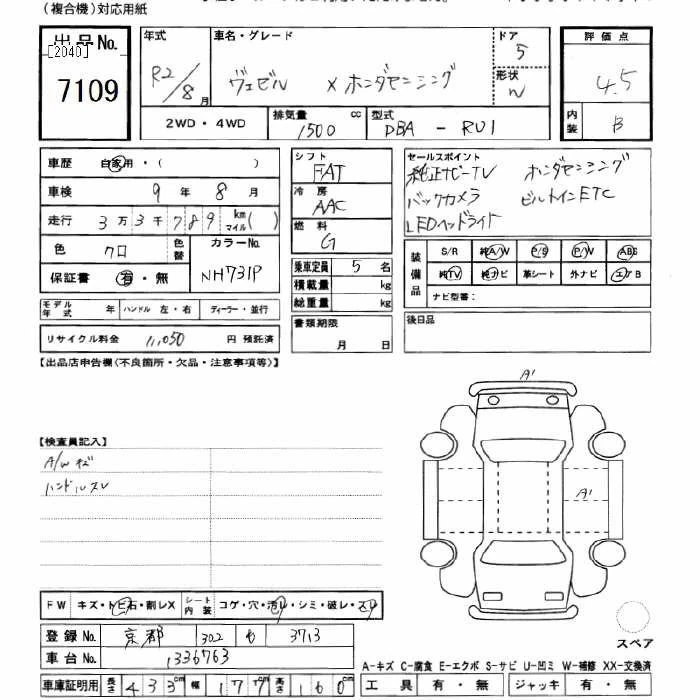 (複合機)対応用紙
出品No.
[2040]
7109
年式
R2/8月
車名・グレード
ヴェゼル X ホンダセンシング
ドア
5
形状
W
2WD・4WD
排気量
1500 cc
型式
DBA - RU1
評価点
4.5
内装
B
車歴 自家用・( )
車検 9年 8月
走行 3万3千789 km マイル( )
色 クロ
色替
カラーNo.
NH731P
保証書 有・無
モデル年式 年 ハンドル 左・右 ディーラー・並行
リサイクル料金 11,050 円 預託済
シフト
FAT
冷房
AAC
燃料
G
乗車定員 5名
積載量 kg
総重量 kg
書類期限
月 日
セールスポイント
純正ナビーTV ホンダセンシング
バックカメラ ビルトインETC
LEDヘッドライト
装備品
S/R 純A/W P/S P/W ABS
純TV 純ナビ 革シート 外ナビ エアB
ナビ型番:
後日品
【出品店申告欄(不良箇所・欠品・注意事項等)】
A'
A'
【検査員記入】
A/Wキズ
ハンドルスレ
FW キズ・トビ石・割レX シート内装 コゲ・穴・汚レ・シミ・破レ・スレ
登録No. 京都 302 も 3713
車台No. 1336763
車庫証明用 長さ 433cm 幅 177cm 高さ 160cm
スペア
A-キズ C-腐食 E-エクボ S-サビ U-凹ミ W-補修 XX-交換済
工具 有・無 ジャッキ 有・無